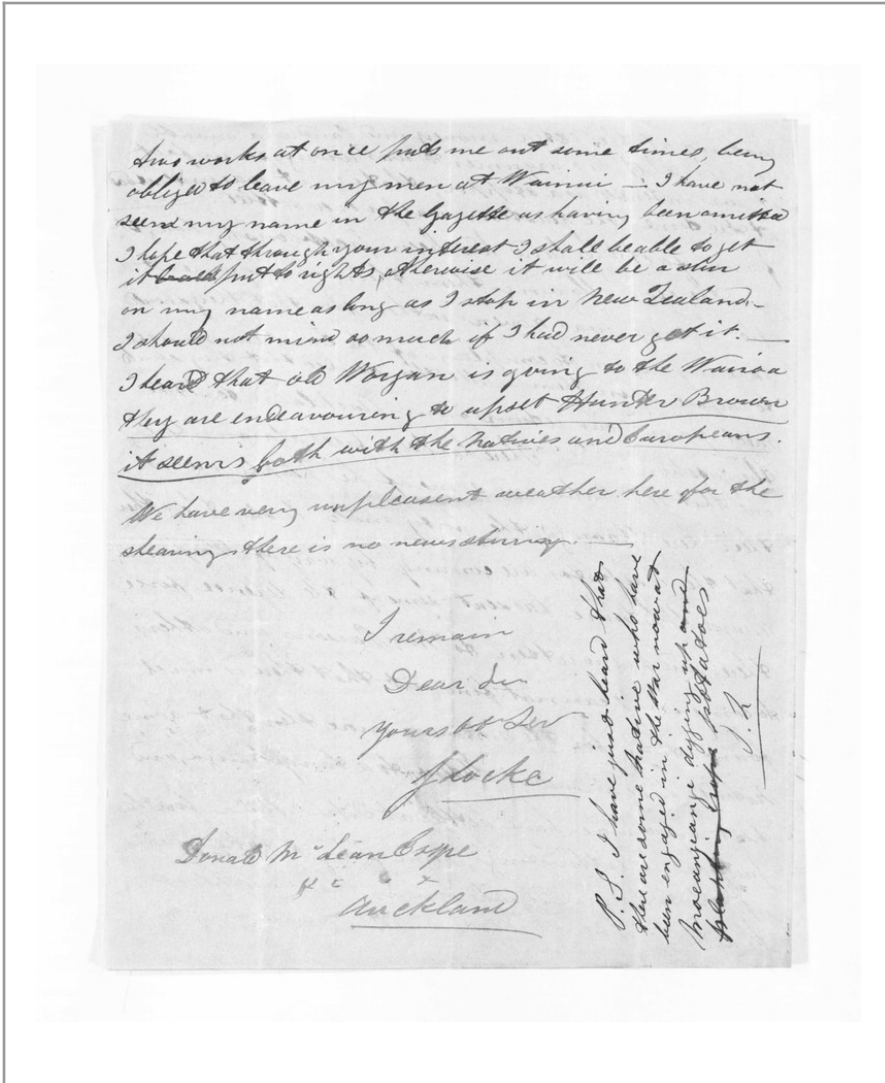 two works at once puts me out some times, being
obliged to leave my men at Wainui — I have not
seen my name in the Gazette as having been omitted
I hope that through your interest I shall be able to get
it put to rights, otherwise it will be a slur
on my name as long as I stop in New Zealand –
I should not mind so much if I had never got it. —
I heard that old Worgan is going to the Wairoa
they are endeavouring to upset Hunter Brown
it seems both with the Natives and Europeans.
We have very unpleasent weather here for the
shearing there is no news stirring —
I remain
Dear Sir
Yours ob Ser
S Locke
Donald McLean Esqe
Auckland
P.S. I have just heard that
there are some native who have
been engaged in the War now at
Moeangiangi digging up and
planting potatoes
S. L